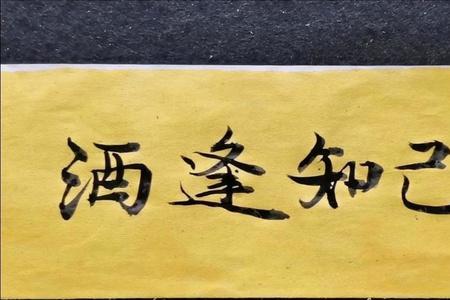 酒逢知己